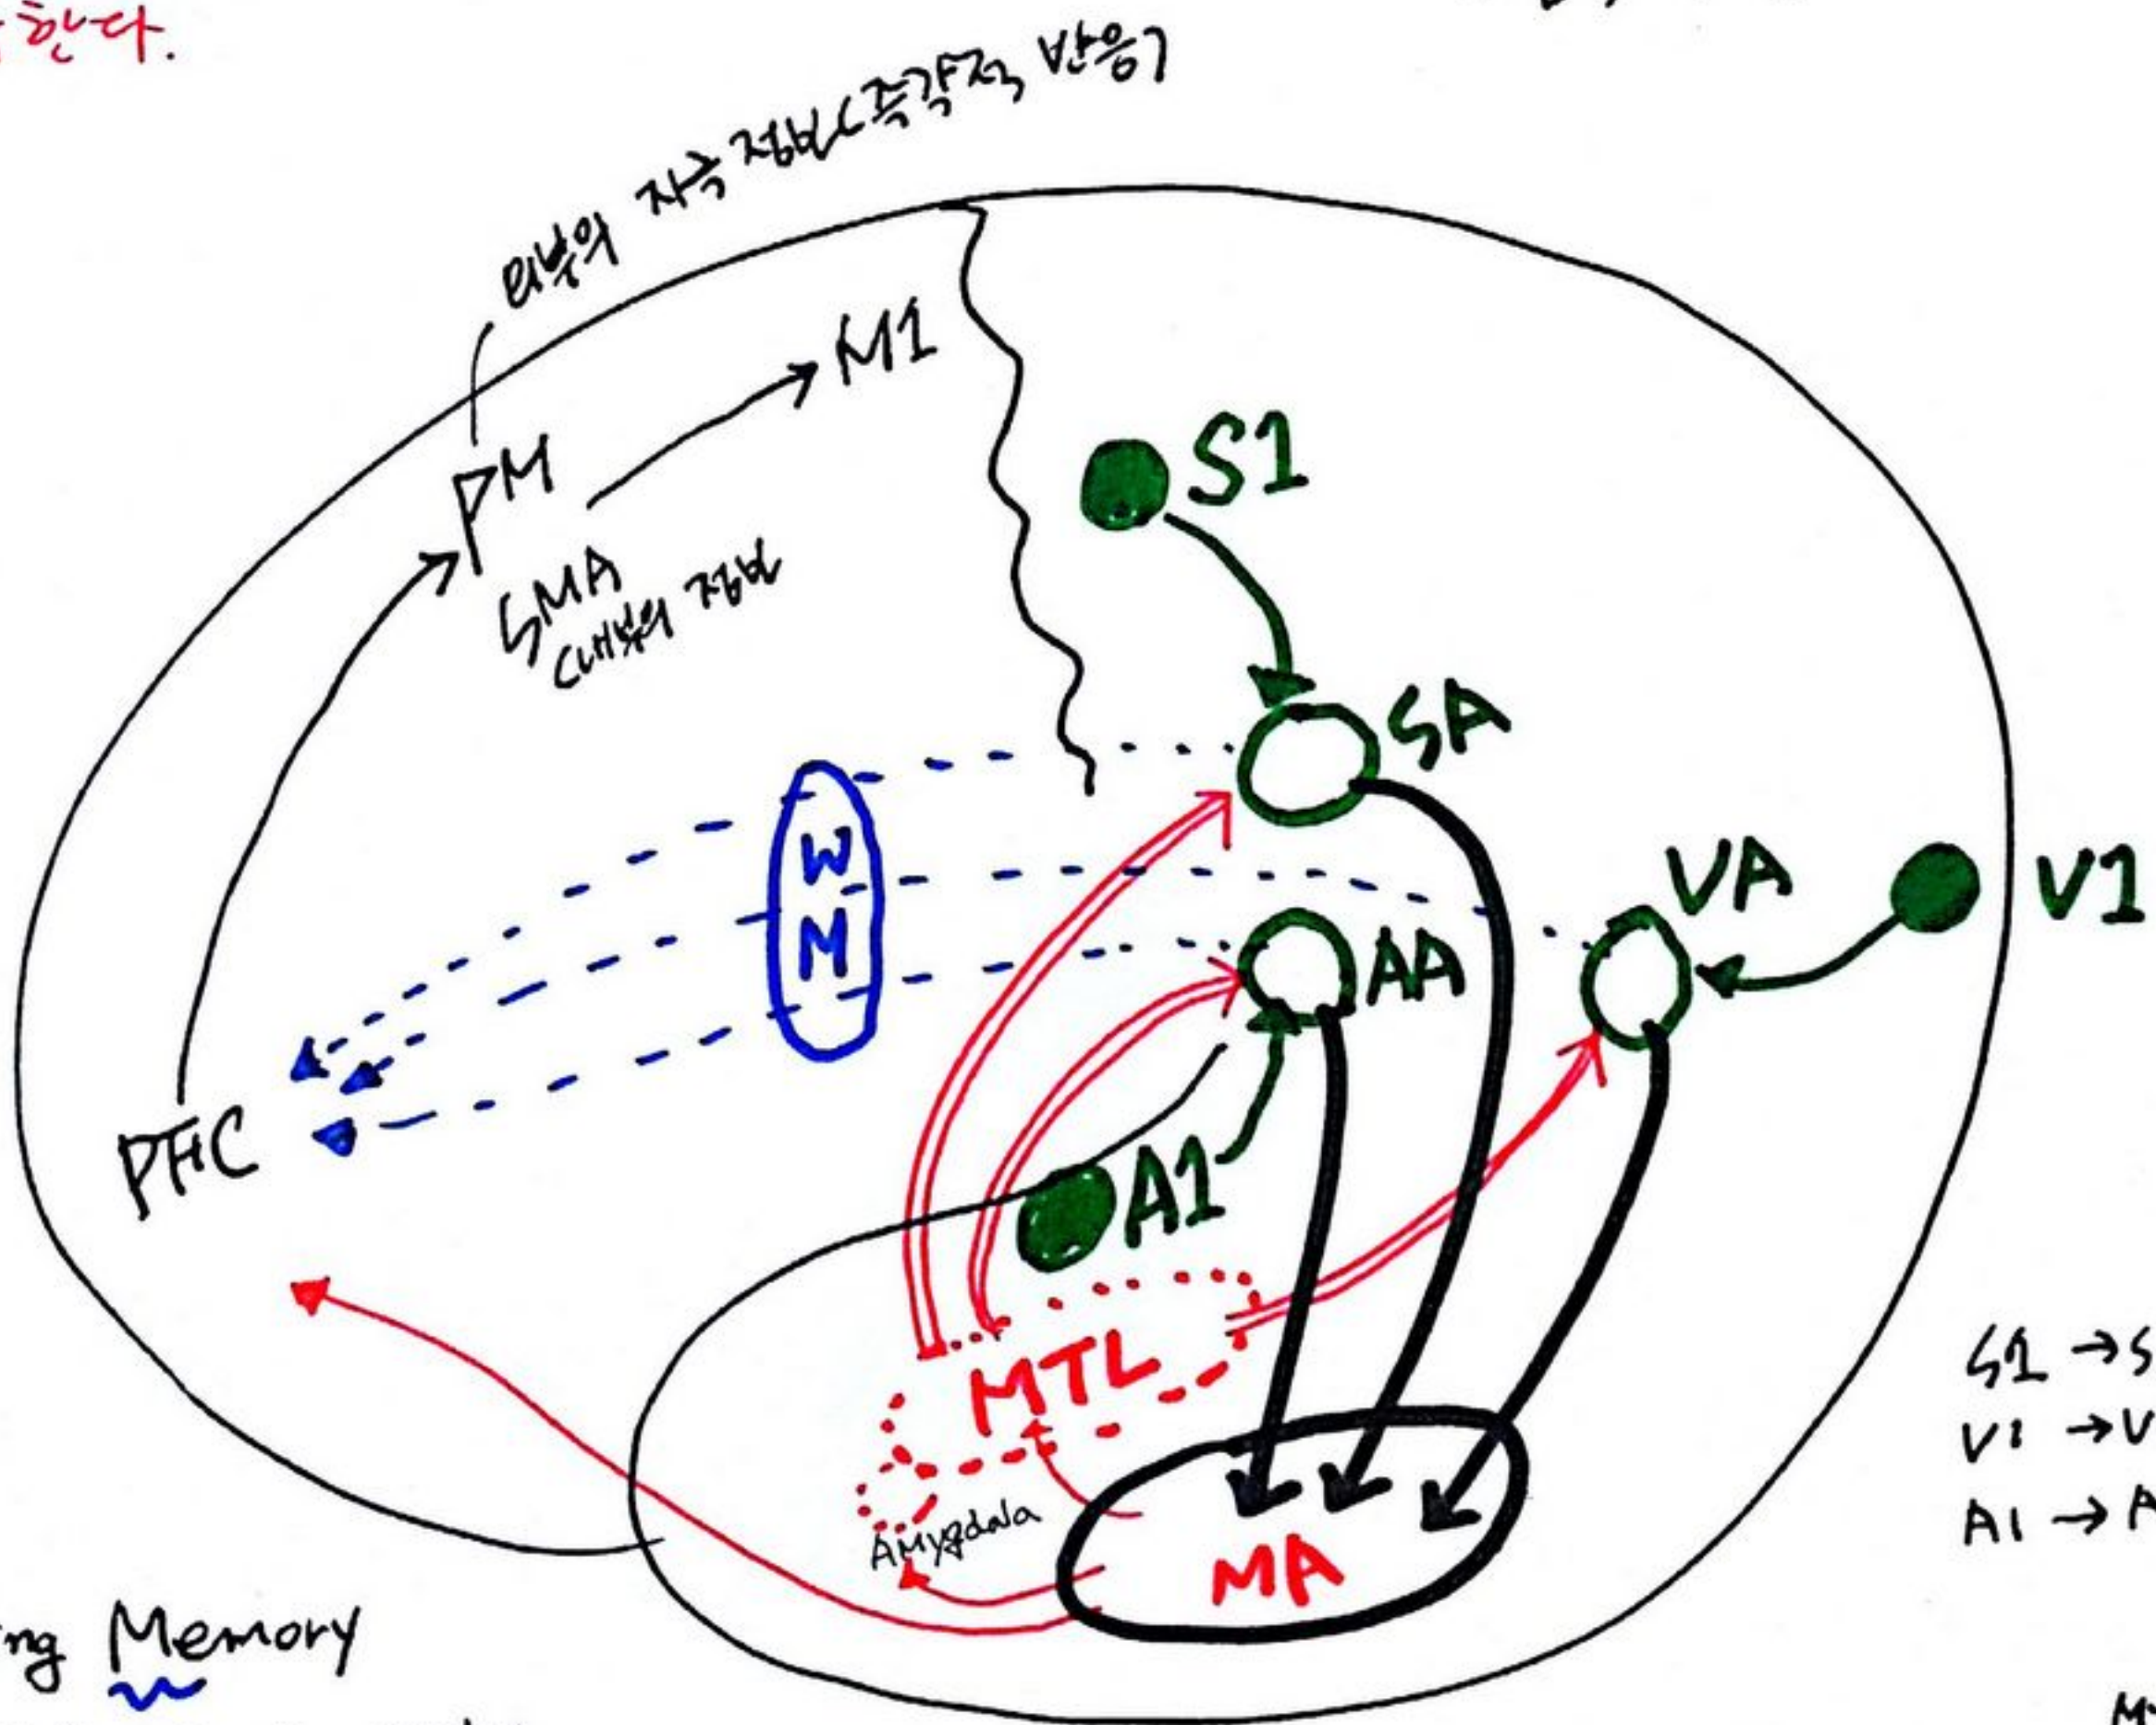 한다.
외부의 자극 정보(즉각적 반응)
M1
PM
SMA
(내부의 정보
S1
SA
W
M
VA
V1
AA
PFC
A1
MTL
Amygdala
MA
S1 → S
V1 → V
A1 → A
ng Memory